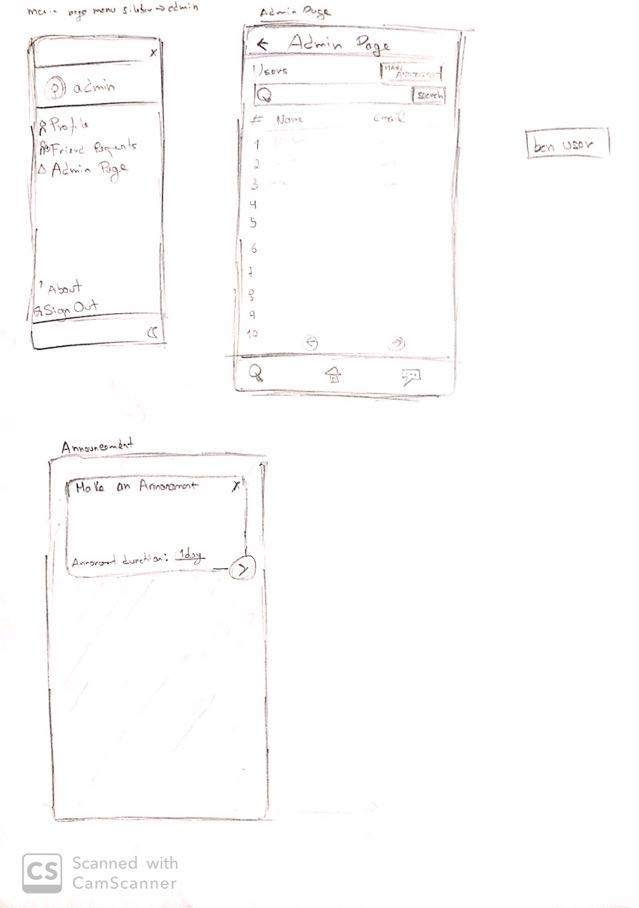 main page menu slider → admin
x
admin
Profile
Friend Requests
Admin Page
? About
Sign Out
Admin Page
← Admin Page
Users
MAKE
search
# Name email
1
2
3
4
5
6
7
8
9
10
ban user
Announcement
Make an Annoncment x
Annoncment duration: 1day
CS Scanned with
CamScanner